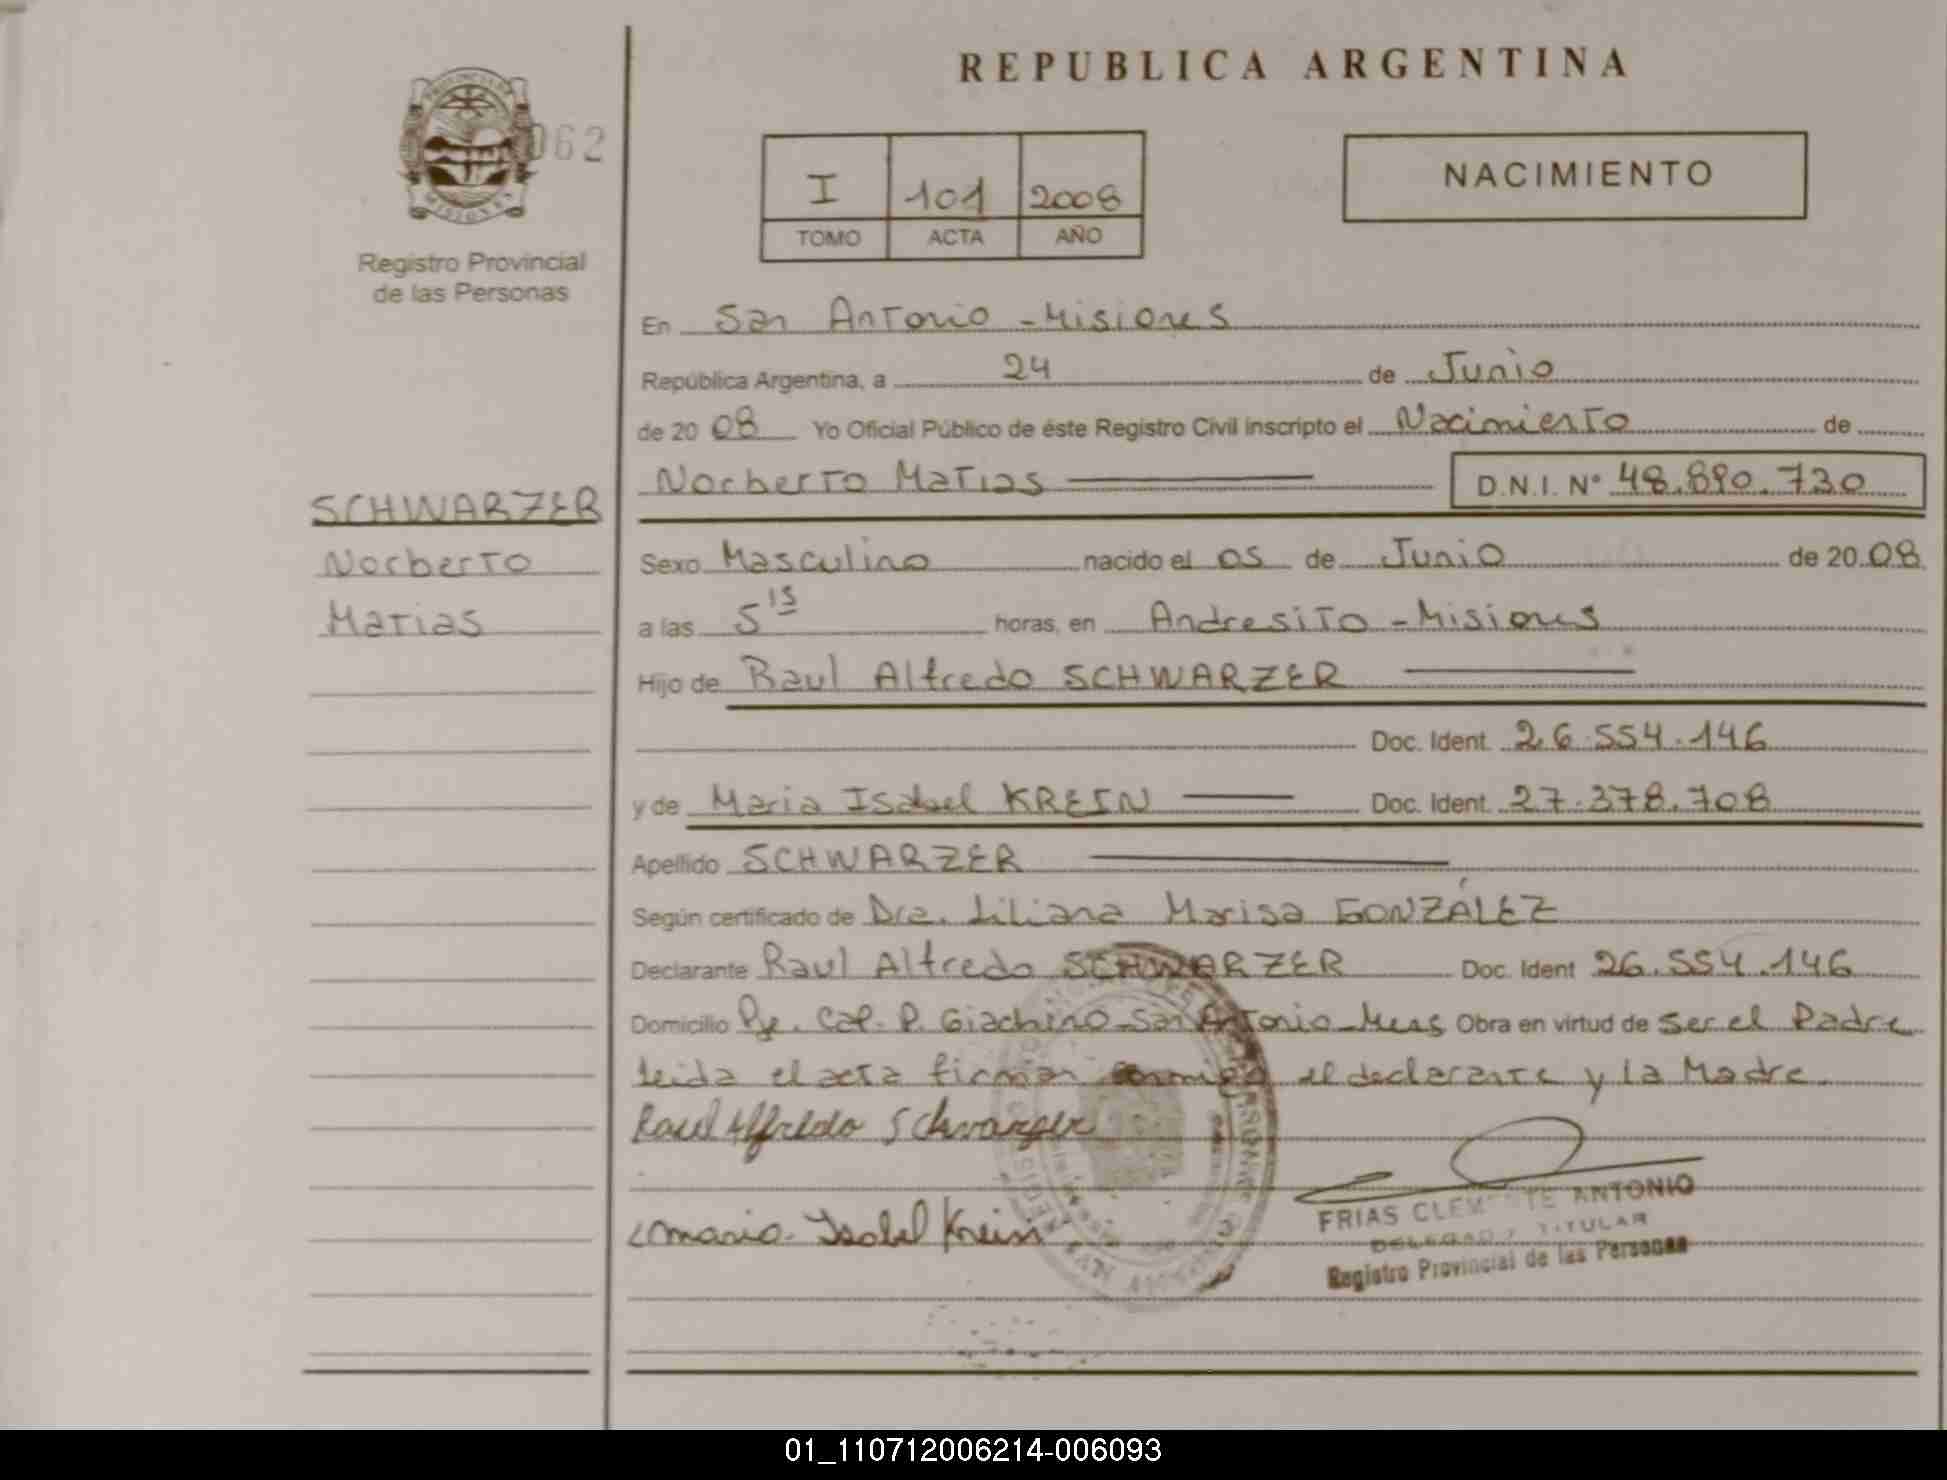 REPUBLICA ARGENTINA
PROVINCIA DE
MISIONES
062
Registro Provincial
de las Personas
I 101 2008
TOMO ACTA AÑO
NACIMIENTO
En San Antonio - Misiones
República Argentina, a 24 de Junio
de 20 08 Yo Oficial Público de éste Registro Civil inscripto el Nacimiento de
Norberto Matias D.N.I. N° 48.890.730
SCHWARZER
Norberto
Matias
Sexo Masculino nacido el 05 de Junio de 20 08
a las 5 15 horas, en Andresito - Misiones
Hijo de Raul Alfredo SCHWARZER
Doc. Ident. 26.554.146
y de Maria Isabel KREIN Doc. Ident. 27.378.708
Apellido SCHWARZER
Según certificado de Dra. Liliana Marisa GONZÁLEZ
Declarante Raul Alfredo SCHWARZER Doc. Ident 26.554.146
Domicilio Pje. Cap. P. Giachino - San Antonio - Mnes Obra en virtud de ser el Padre
leida el acta firman conmigo el declarante y la Madre.
Raul Alfredo Schwarzer
Maria Isabel Krein
FRIAS CLEMENTE ANTONIO
DELEGADO TITULAR
Registro Provincial de las Personas
01_110712006214-006093